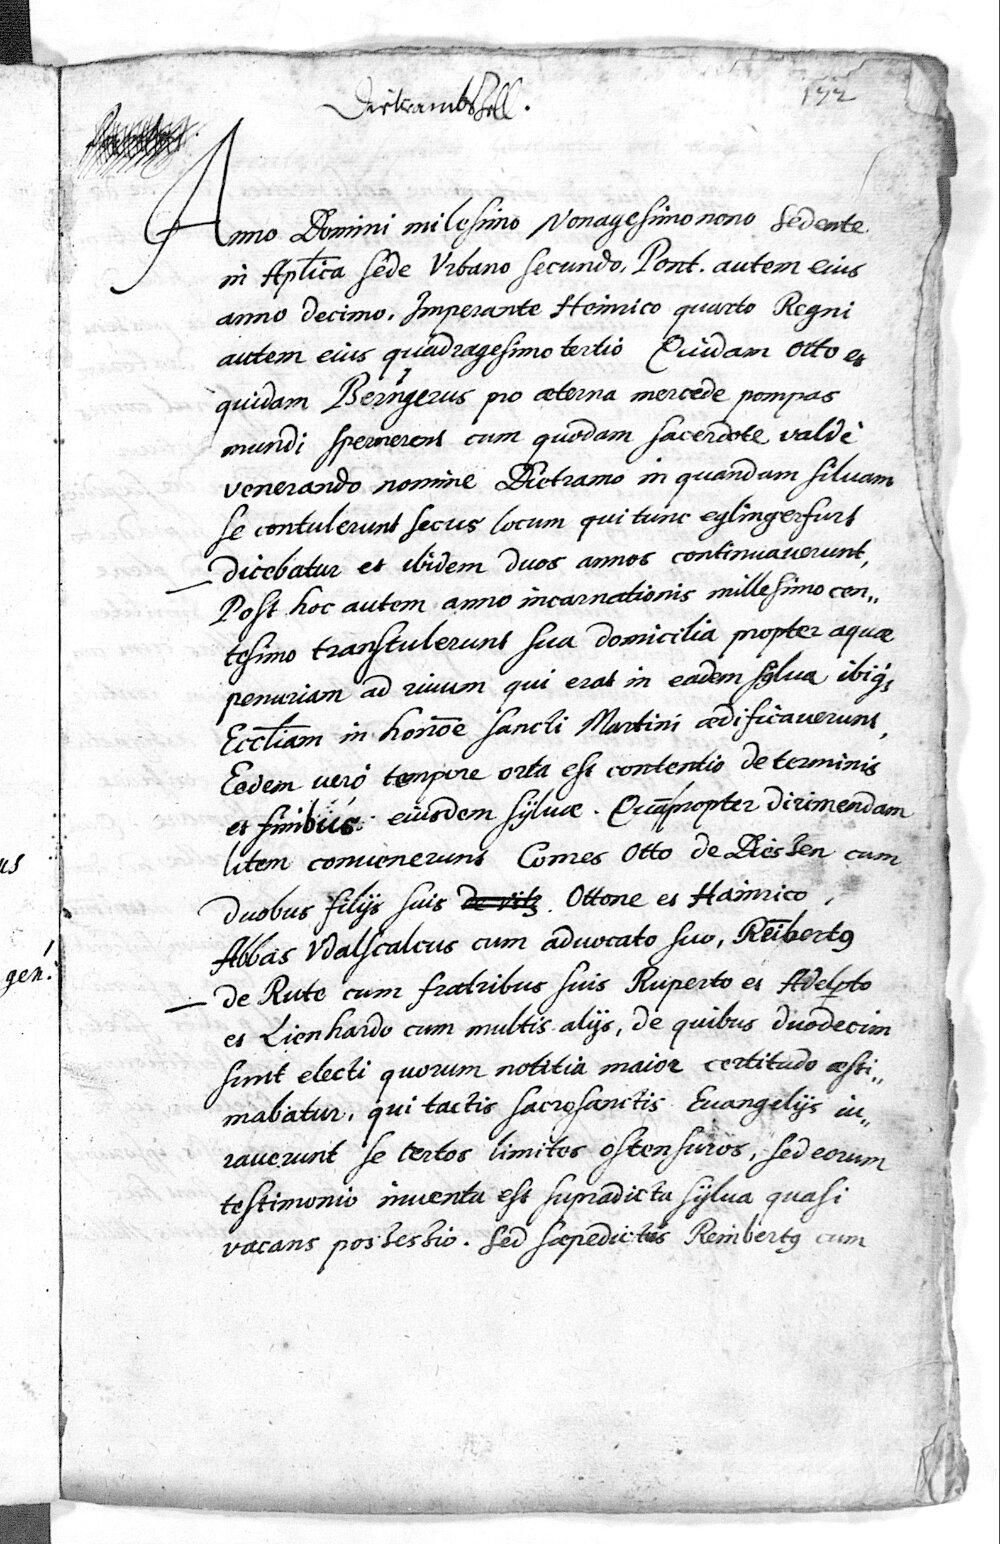 Dietrambszell.
Anno Domini milesimo Nonagesimo nono Sedente
in Apl̄ica sede Vrbano secundo, Pont. autem eius
anno decimo, Imperante Heinrico quarto Regni
autem eius quadragesimo tertio Quidam Otto et
quidam Beringerus pro æterna mercede pompas
mundi spernerent cum quodam sacerdote valdè
venerando nomine Dietramo in quandam siluam
se contulerunt secus locum qui tunc eglingerfurt
dicebatur et ibidem duos annos continuauerunt,
Post hoc autem anno incarnationis millesimo cen„
tesimo transtulerunt sua domicilia propter aquæ
penuriam ad riuum qui erat in eadem sylua ibiq,
Eccl̄iam in honōe sancti Martini ædificauerunt,
Eodem verò tempore orta est contentio de terminis
et finibus eiusdem syluæ. Quāpropter dirimendam
litem conuenerunt Comes Otto de Diessen cum
duobus filijs suis Ottone et Hainrico,
Abbas Vdalscalcus cum aduocato suo, Rēibertꝯ
de Rute cum fratribus suis Ruperto et Adelpto
et Lienhardo cum multis alijs, de quibus duodecim
sunt electi quorum notitia maior certitudo æsti„
mabatur, qui tactis sacrosanctis Euangelijs iu„
rauerunt se certos limites ostensuros, sed eorum
testimonio inuenta est supradicta sylua quasi
vacans possessio. Sed sæpedictus Reinbertꝯ cum
us
gen.